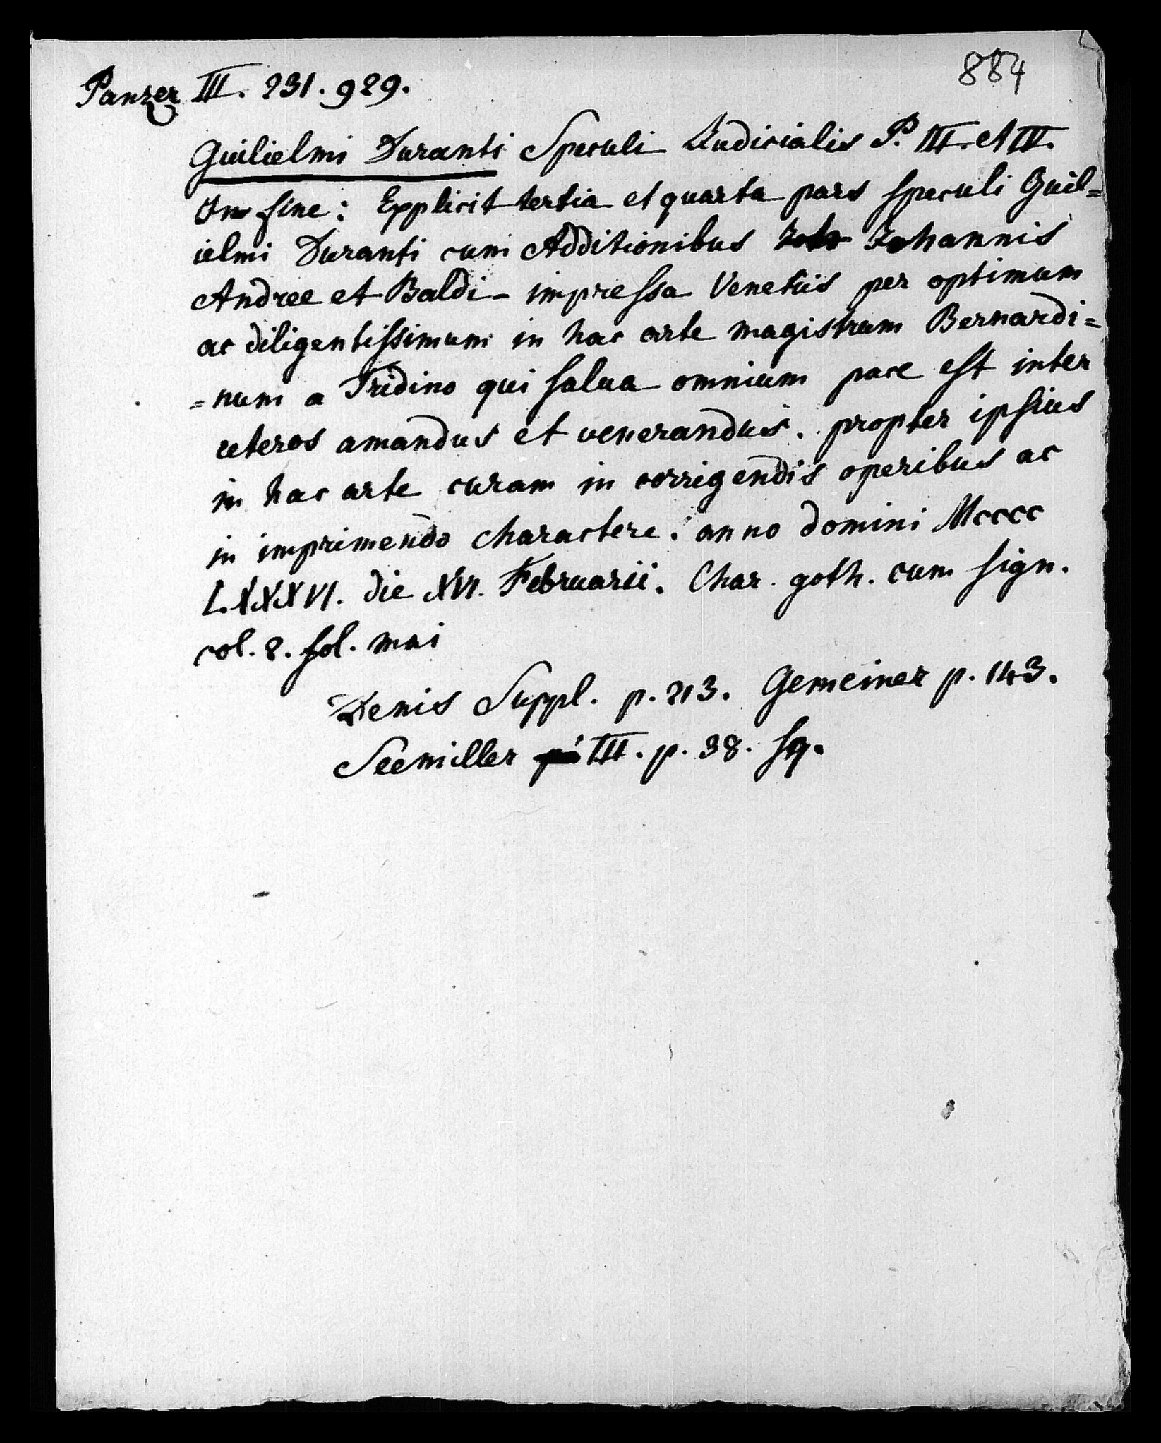 884
Panzer III. 231. 929.
Guilielmi Duranti Speculi Judicialis P. III. et IV.
In fine: Explicit tertia et quarta pars speculi Guil=
ielmi Duranti cum Additionibus Johannis
Andree et Baldi - impressa Venetiis per optimum
ac diligentissimum in hac arte magistrum Bernardi=
=num a Tridino qui salua omnium pace est inter
ceteros amandus et venerandus. propter ipsius
in hac arte curam in corrigendis operibus ac
in imprimendo charactere. anno domini Mcccc
LXXXVI. die XVI. Februarii. Char. goth. cum sign.
col. 2. fol. mai
Denis Suppl. p. 213. Gemeiner p. 143.
Seemiller III. p. 38. sq.